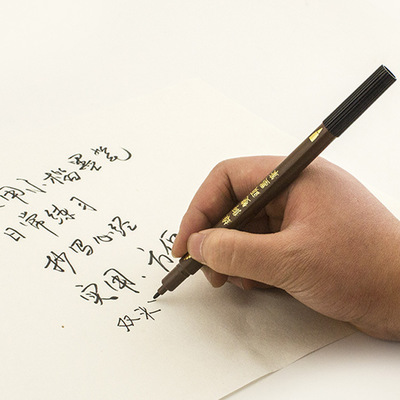 用小楷墨笔
日常练习
抄写心经
实用.方便
双头